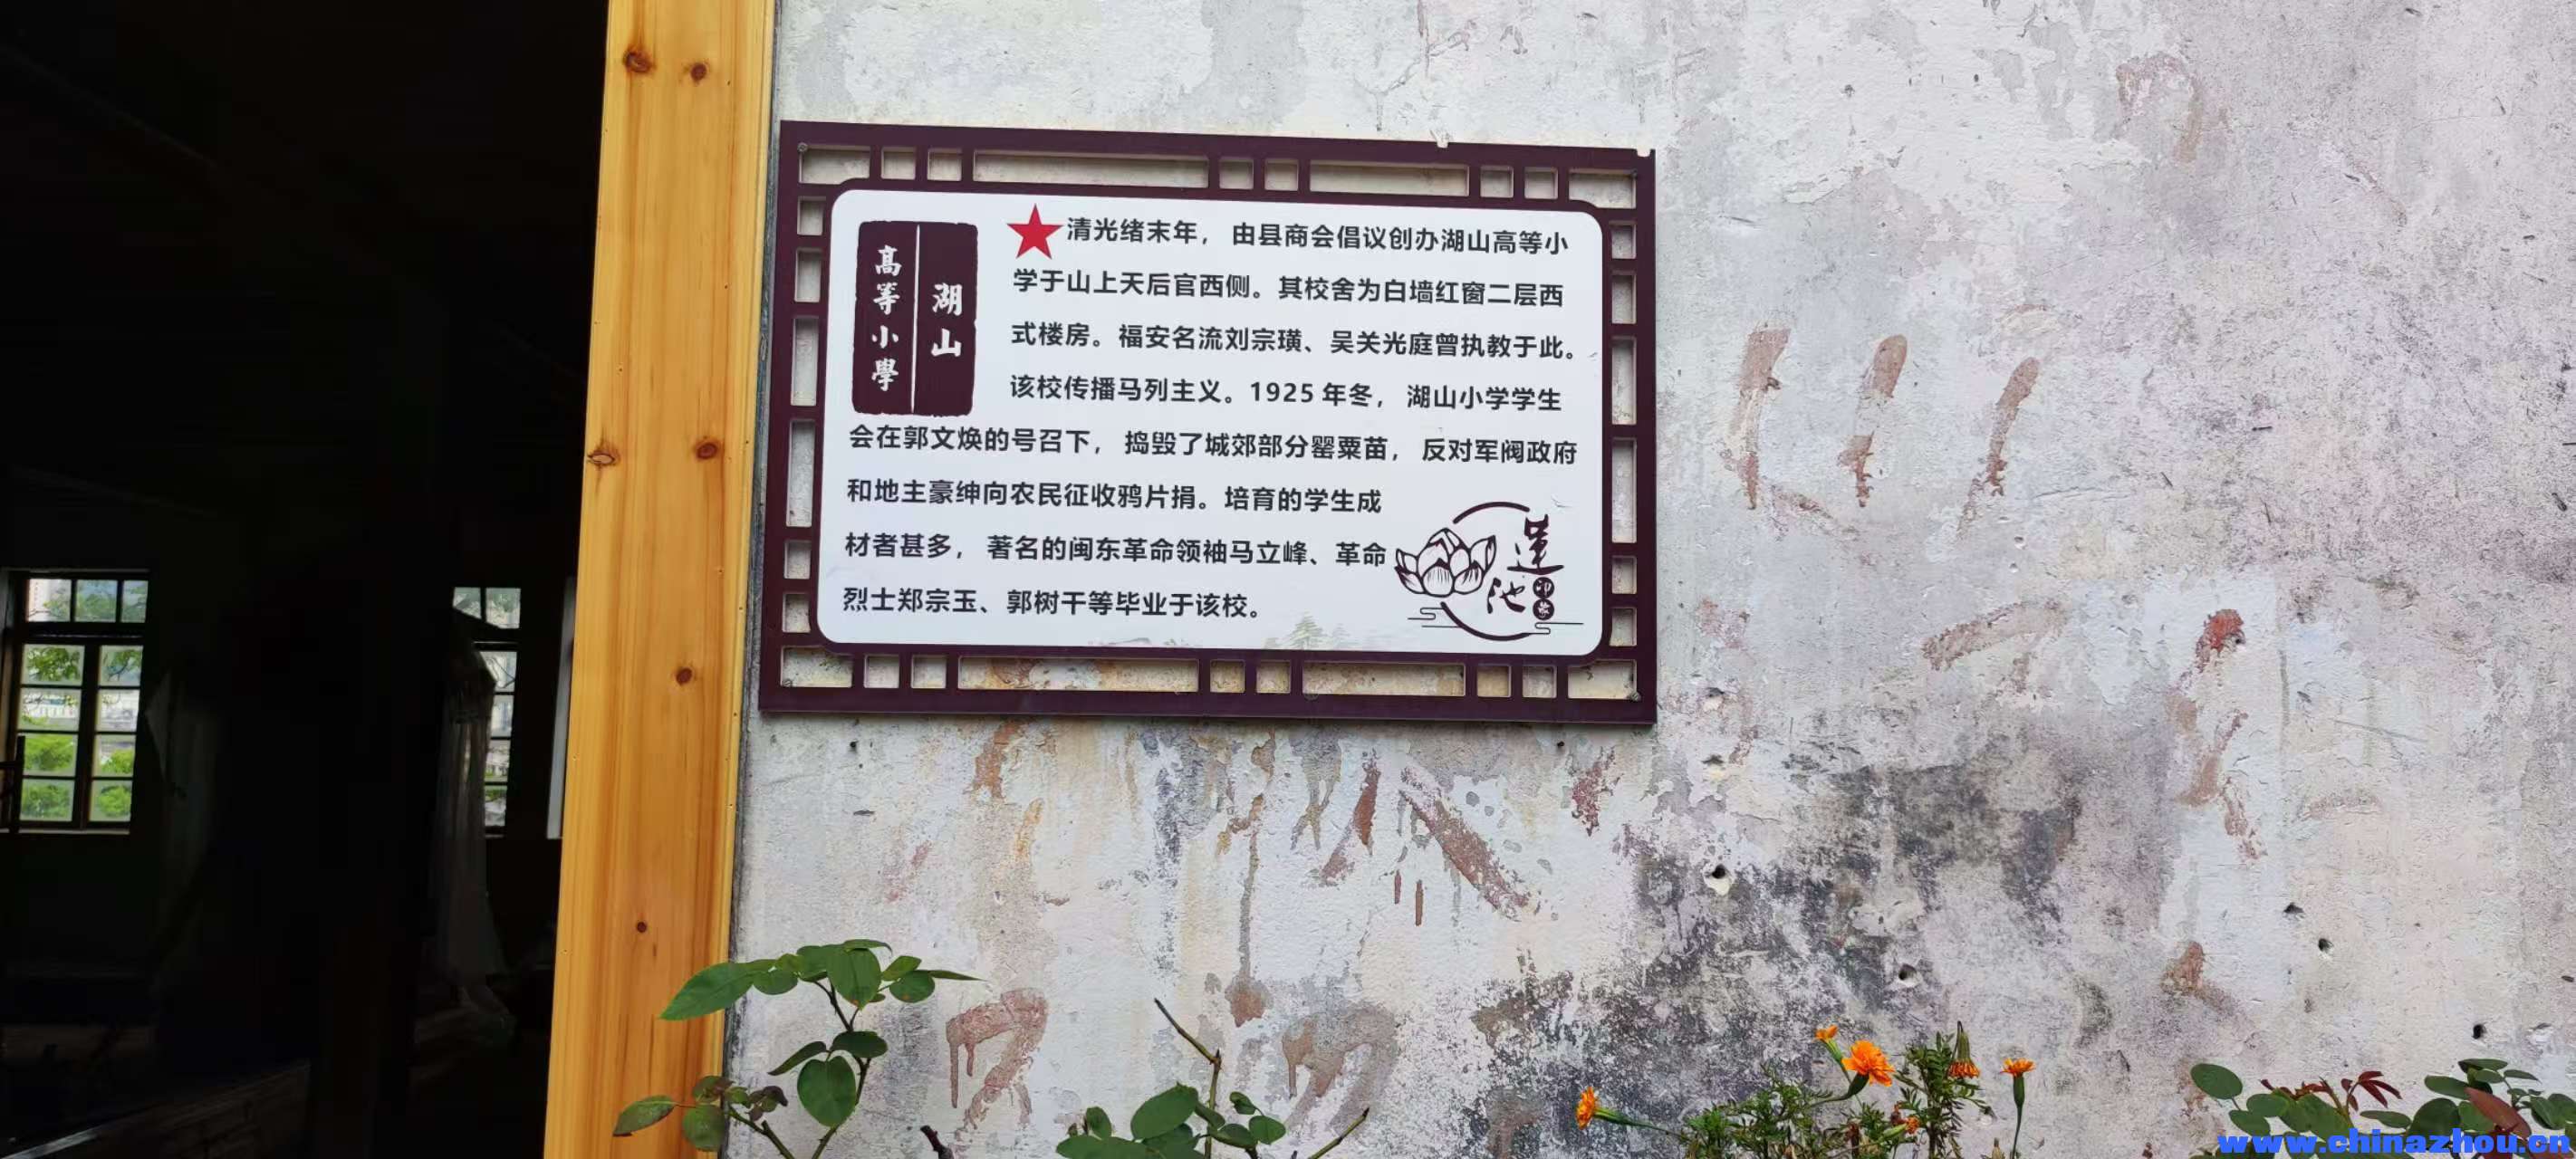 湖山
高等小學
清光绪末年，由县商会倡议创办湖山高等小
学于山上天后官西侧。其校舍为白墙红窗二层西
式楼房。福安名流刘宗璜、吴关光庭曾执教于此。
该校传播马列主义。1925年冬，湖山小学学生
会在郭文焕的号召下，捣毁了城郊部分罂粟苗，反对军阀政府
和地主豪绅向农民征收鸦片捐。培育的学生成
材者甚多，著名的闽东革命领袖马立峰、革命
烈士郑宗玉、郭树干等毕业于该校。
蓮池
www.chinazhou.cn